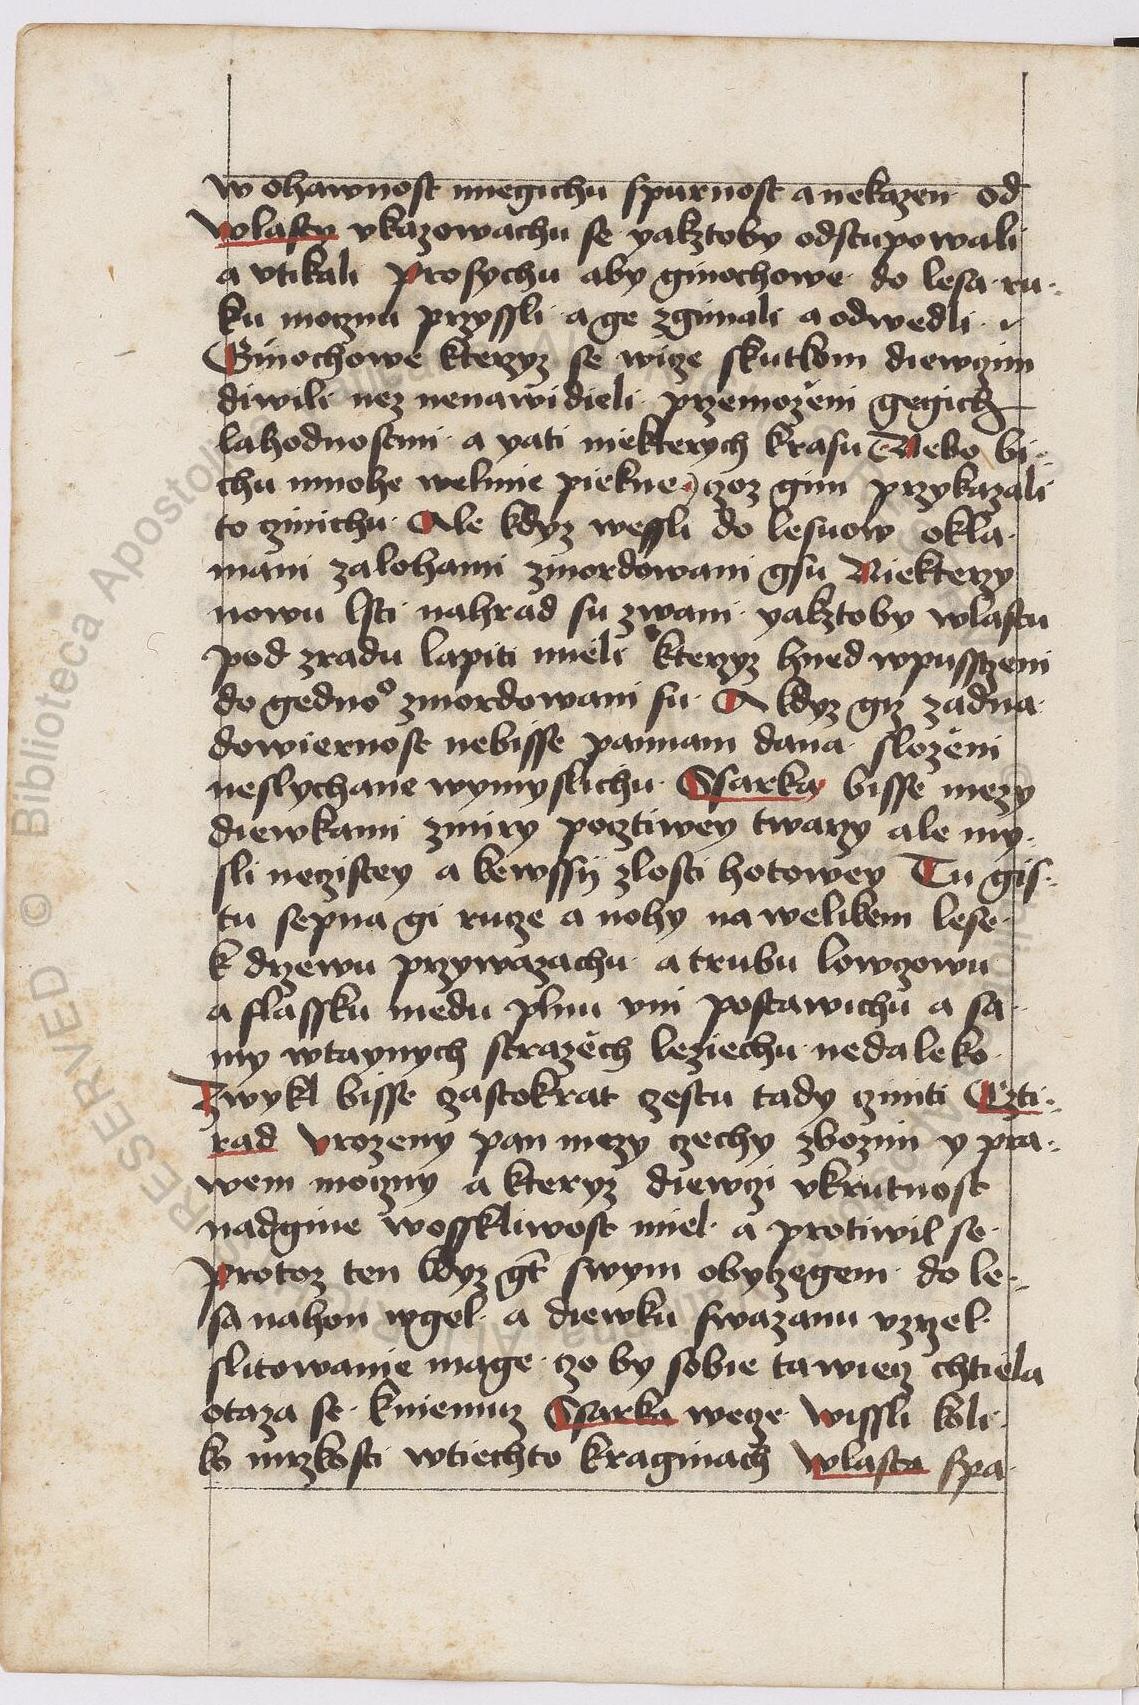 w ohawnost miegichu spurnost a nekazen od
wlasty vkazowachu se yakztoby odstupowali
a vtikali Prosychu aby ginochowe do lesa ru-
ku mocznu przyssli a ge zgimali a odwedli
Ginochowe kterzyz se wicze skutkom diewczim
diwili nez nenawidieli przemozeni gegich
lahodnostmi a yati niekterych krasu Nebo bi-
chu mnohe welmie piekne czoz gim przykazali
to czinichu Ale kdyz wessli do lesuow okla-
mani zalohami zmordowani gsu Niekterzy
nowu lsti nahrad su zwani yakztoby wlastu
pod zradu lapiti mieli kterzyz hned wpusstzeni
do gednoo zmordowani su A kdyz giz zadna
dowiernost nebisse pannam dana slozeni
neslychane wymyslichu Ssarka bisse mezy
diewkami zmiry pocztiwey twarzy ale my-
sli neczistey a kewssij zlosti hotowey Tu gis-
tu sepna gi rucze a nohy na welikem lese
k drzewu przywazachu a trubu lowczowu
a flassku medu plnu vni postawichu a sa-
my wtaynych strazech leziechu nedaleko
Zwykl bisse czastokrat czestu tady cziniti Czti-
rad Vrozeny pan mezy czechy zbozim y pra-
wem moczny a kteryz diewczi vkrutnost
nadgine wosskliwost miel a protiwil se
Protoz ten kdyz gt swym obyczegem do le-
sa nahon wgel a diewku swazanu vzrzel
slitowanie mage czo by sobie ta wiecz chtiela
otaza se kniemuz Ssarka wecze Wissli koli-
ko mrzkosti wtiechto kraginach Wlasta spa-
RESERVED © Biblioteca Apostolica